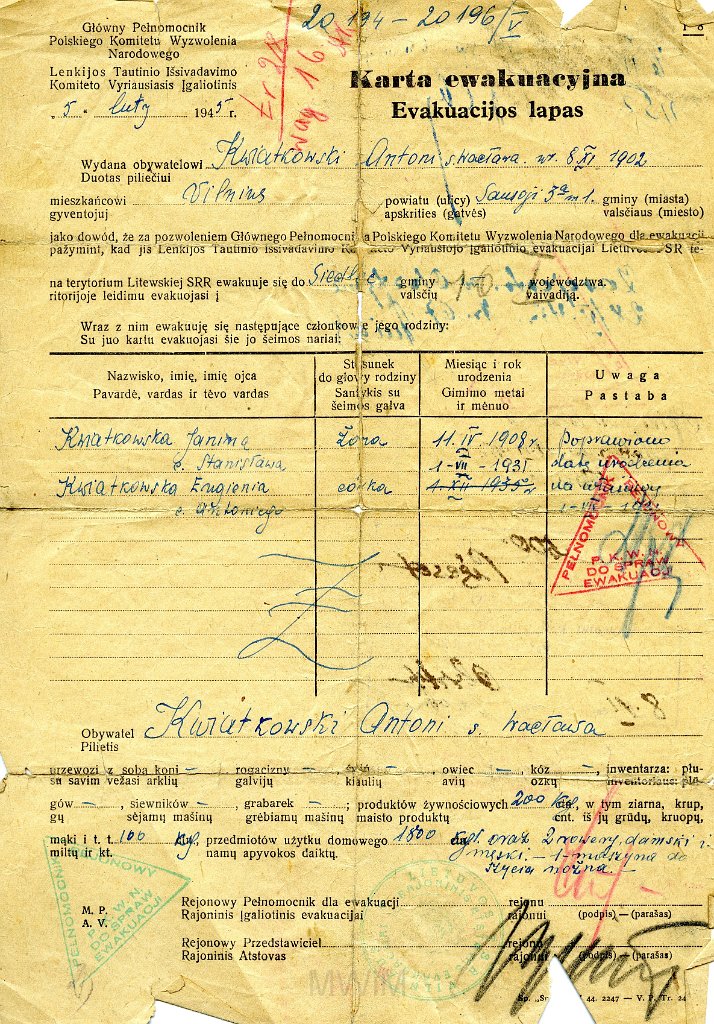 20 194 – 20 196/V
Główny Pełnomocnik
Polskiego Komitetu Wyzwolenia
Narodowego
Lenkijos Tautinio Išsivadavimo
Komiteto Vyriausiasis Įgaliotinis
"5" luty 1945 r.
wag 16
Karta ewakuacyjna
Evakuacijos lapas
Wydana obywatelowi Kwiatkowski Antoni s. Wacława ur. 8 XI 1902
Duotas piliečiui
mieszkańcowi Vilnius powiatu (ulicy) Sausoji 3a m 1. gminy (miasta)
gyventojuj apskrities (gatvės) valsčiaus (miesto)
jako dowód, że za pozwoleniem Głównego Pełnomocnika Polskiego Komitetu Wyzwolenia Narodowego dla ewakuacji
pažymint, kad jis Lenkijos Tautinio Išsivadavimo Komiteto Vyriausiojo Įgaliotinio evakuacijai Lietuvos SSR te-
na terytorium Litewskiej SRR ewakuuje się do Siedlce gminy województwa.
ritorijoje leidimu evakuojasi į valsčių vaivadiją.
Wraz z nim ewakuują się następujące członkowie jego rodziny:
Su juo kartu evakuojasi šie jo šeimos nariai:
Nazwisko, imię, imię ojca
Pavardė, vardas ir tėvo vardas
Stosunek
do głowy rodziny
Santykis su
šeimos galva
Miesiąc i rok
urodzenia
Gimimo metai
ir mėnuo
Uwaga
Pastaba
Kwiatkowska Janina żona 11. IV 1908 r. Poprawiono
c. Stanisława 1 - VII - 1931 datę urodzenia
Kwiatkowska Eugienia córka 1 XII 1935 r na
c. Antoniego 1 - VII -
PEŁNOMOCNIK REJONOWY
P. K. W. N.
DO SPRAW
EWAKUACJI
Obywatel Kwiatkowski Antoni s. Wacława
Pilietis
przewozi z sobą koni –, rogacizny –, świń –, owiec –, kóz –, inwentarza: płu-
su savim vežasi arklių galvijų kiaulių avių ožkų inventoriaus: plū-
gów –, siewników –, grabarek –; produktów żywnościowych 200 kg, w tym ziarna, krup,
gų sėjamų mašinų grėbiamų mašinų maisto produktų cnt. iš jų grūdų, kruopų,
mąki i t. t. 100 kg, przedmiotów użytku domowego 1800 kgl. oraz 2 rowery, damski i
miltų ir kt. namų apyvokos daiktų. męski. – 1 – maszyna do
szycia nożna. –
REJONOWY
PEŁNOMOCNIK
P. K. W. N.
DO SPRAW
EWAKUACJI
M. P.
A. V.
Rejonowy Pełnomocnik dla ewakuacji rejonu
Rajoninis Įgaliotinis evakuacijai rajonui (podpis) – (parašas)
Rejonowy Przedstawiciel rejonu
Rajoninis Atstovas rajonui (podpis) – (parašas)
LIETUVOS
MWIM
44. 2247 – V. P. Tr. 24